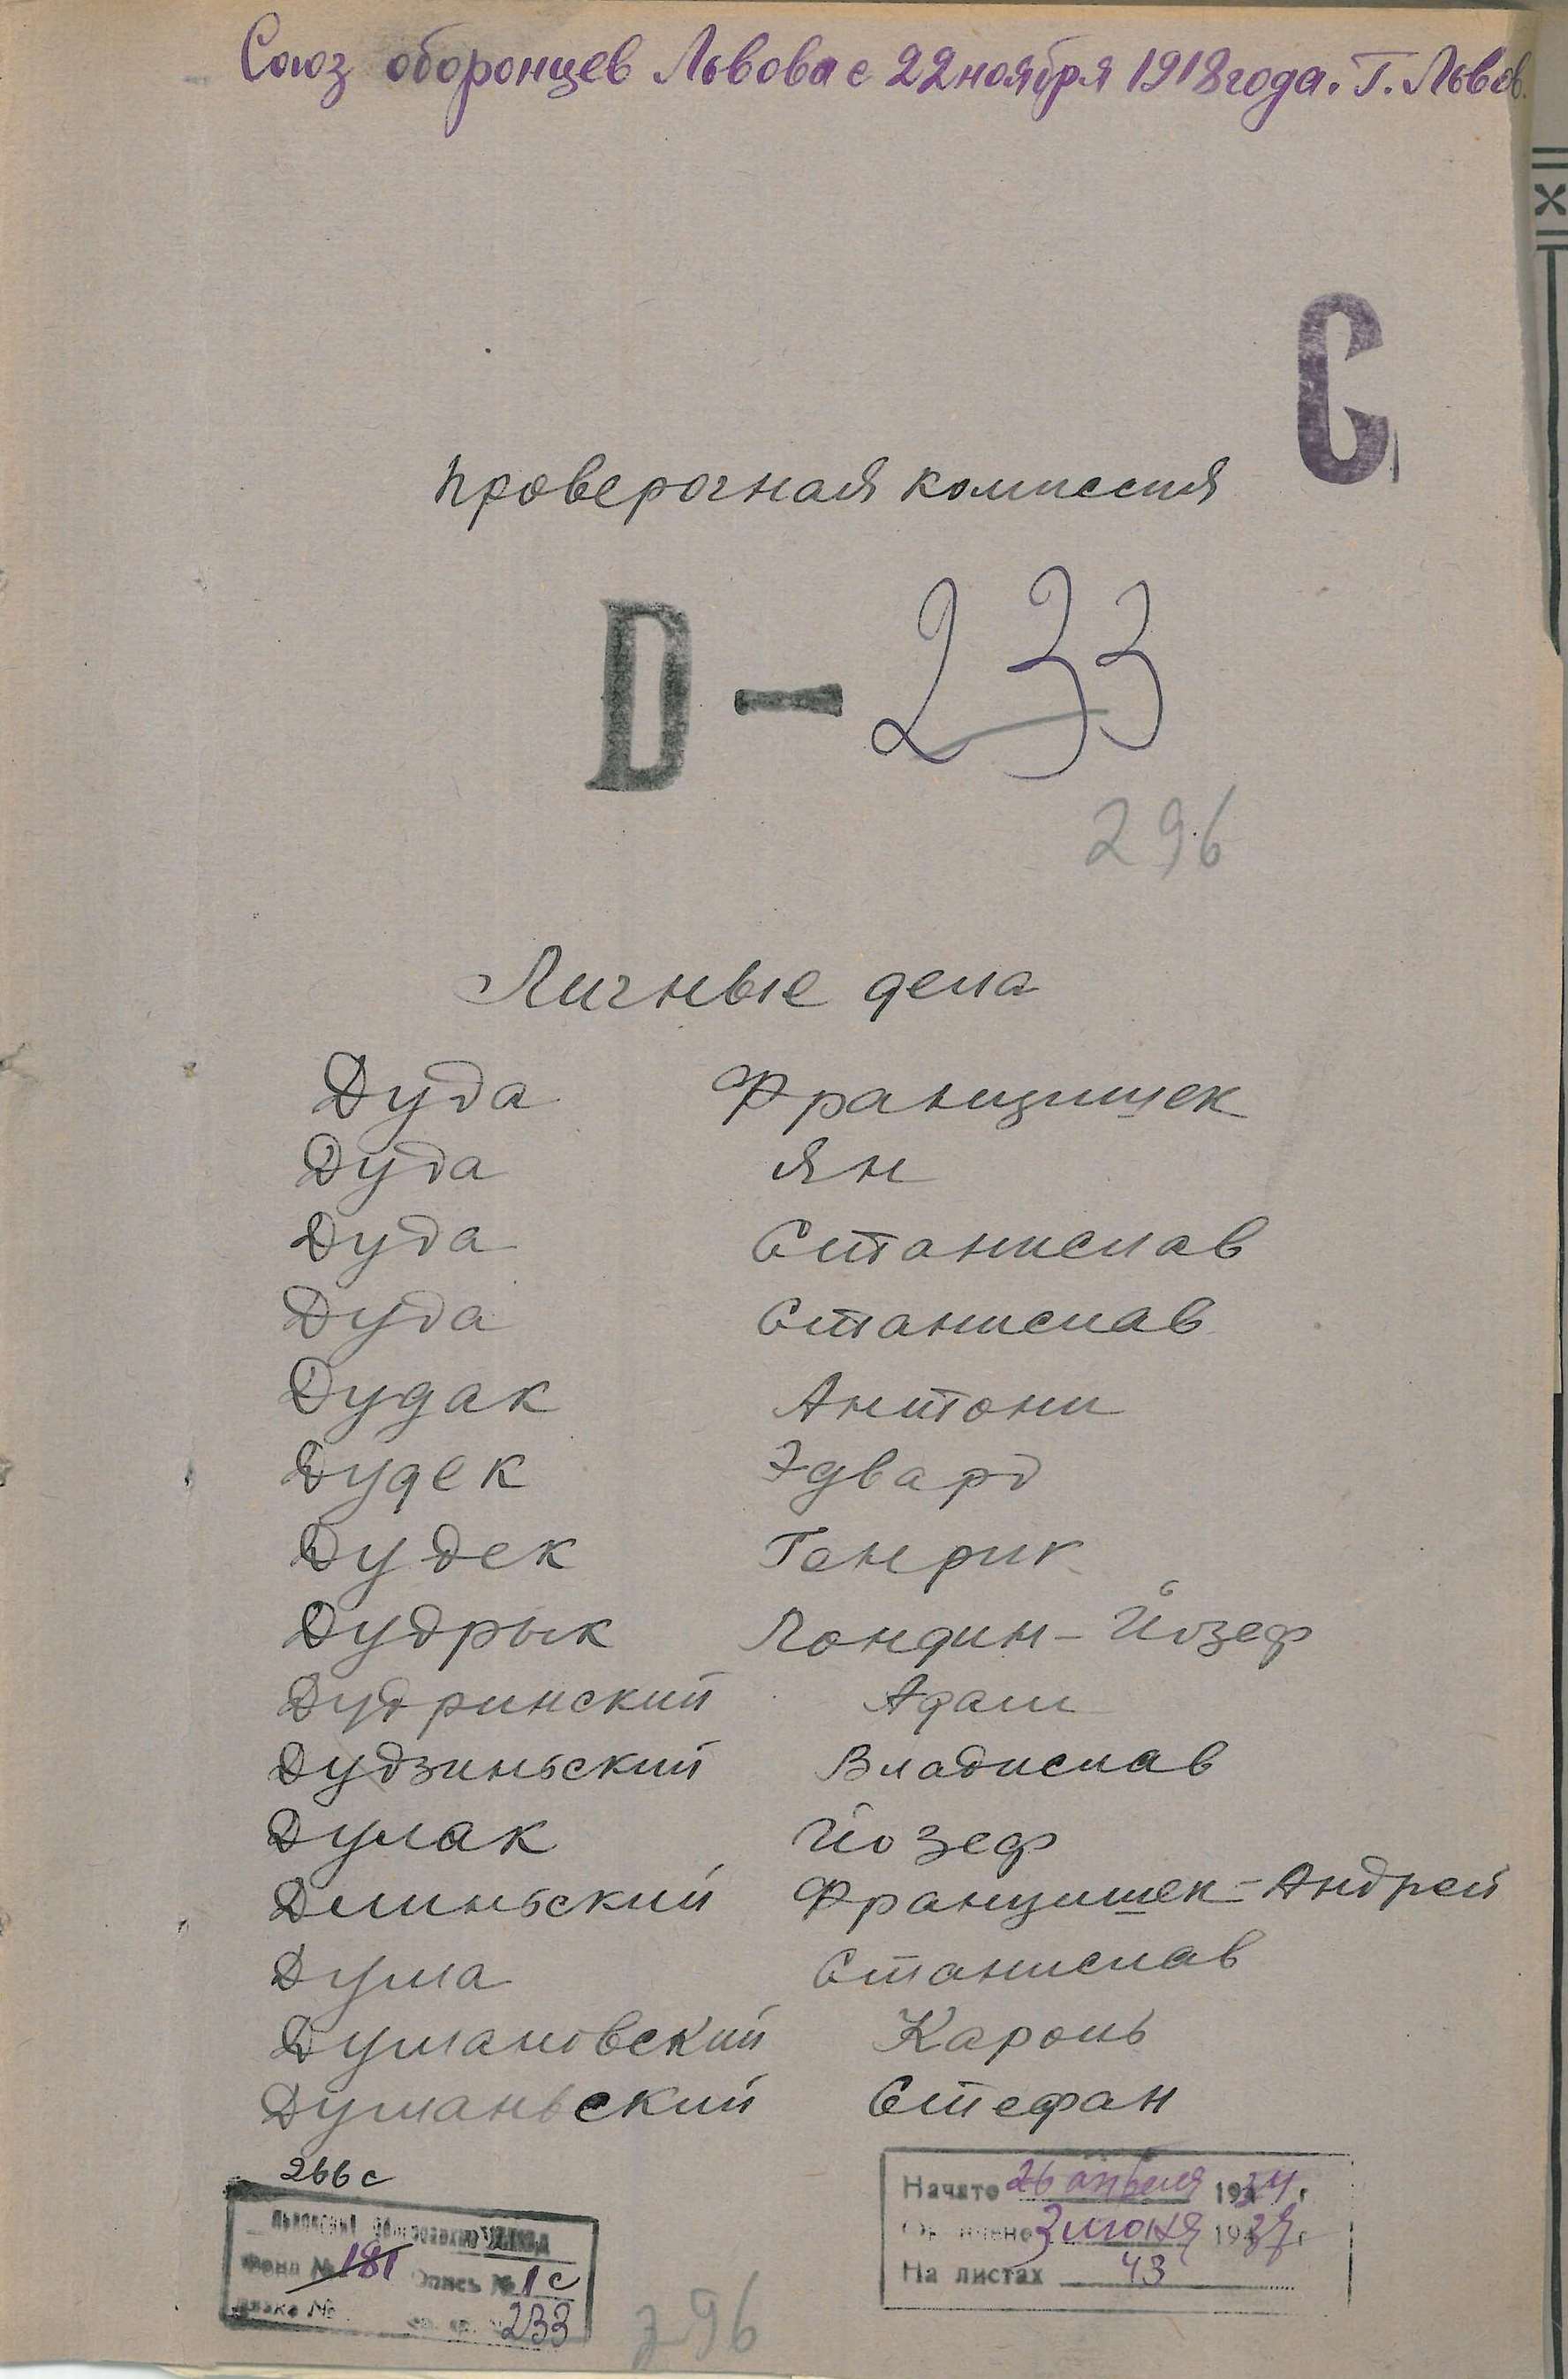 Союз оборонцев Львова с 22 ноября 1918 года. Г. Львов.
С
Проверочная комиссия
D — 233
296
Личные дела
Дуда Францишек
Дуда Ян
Дуда Станислав
Дуда Станислав
Дудак Антони
Дудек Эдвард
Дудек Генрик
Дудрык Лондин-Йозеф
Дудринский Адам
Дудзиньский Владислав
Дулак Йозеф
Длиньский Францишек-Андрей
Дума Станислав
Думановский Кароль
Думаньский Стефан
266 с
Фонд № 181 Опись № 1 с
233
296
Начато 26 апреля 1934 г.
3 июня 19
На листах 43